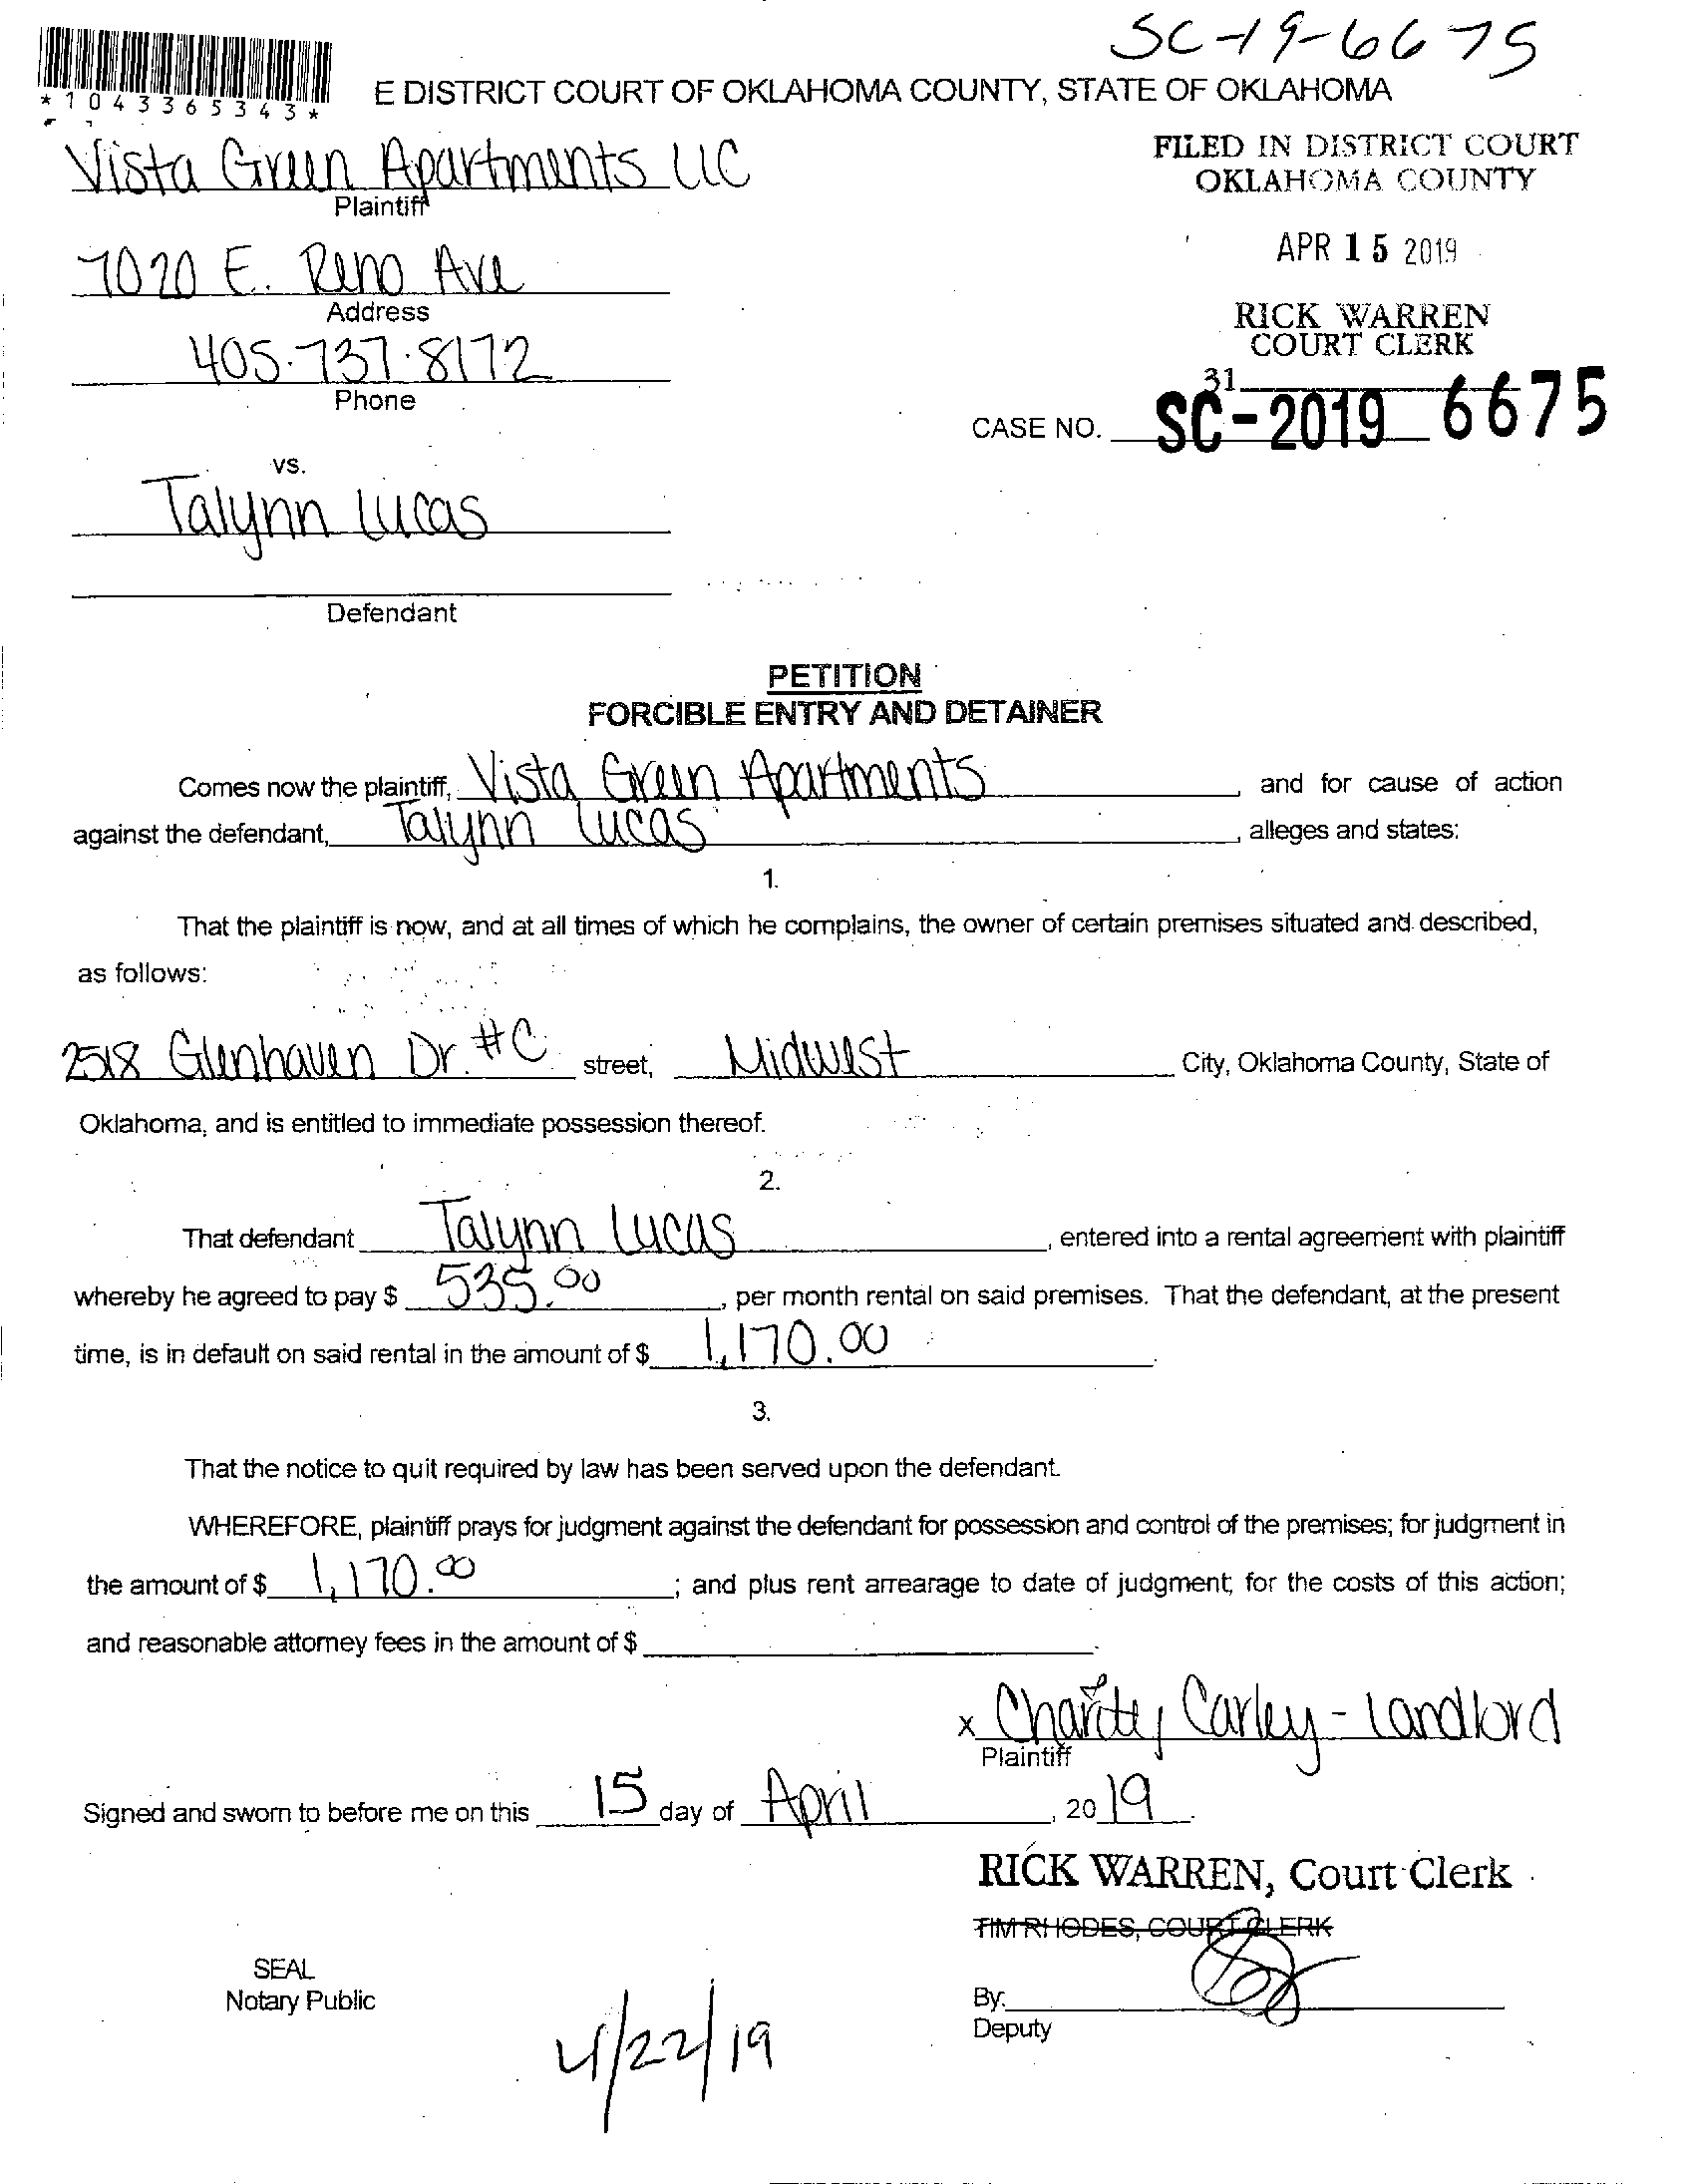 SC-19-6675
*1043365343*
E DISTRICT COURT OF OKLAHOMA COUNTY, STATE OF OKLAHOMA
Vista Green Apartments LLC
Plaintiff
FILED IN DISTRICT COURT
OKLAHOMA COUNTY
7020 E. Reno Ave
Address
APR 15 2019
405-737-8172
Phone
RICK WARREN
COURT CLERK
31
CASE NO. SC-2019 6675
vs.
Talynn Lucas
Defendant
PETITION
FORCIBLE ENTRY AND DETAINER
Comes now the plaintiff, Vista Green Apartments and for cause of action
against the defendant, Talynn Lucas, alleges and states:
1.
That the plaintiff is now, and at all times of which he complains, the owner of certain premises situated and described,
as follows:
2518 Glenhaven Dr. #C street, Midwest City, Oklahoma County, State of
Oklahoma, and is entitled to immediate possession thereof.
2.
That defendant Talynn Lucas, entered into a rental agreement with plaintiff
whereby he agreed to pay $ 535.00, per month rental on said premises. That the defendant, at the present
time, is in default on said rental in the amount of $ 1,170.00.
3.
That the notice to quit required by law has been served upon the defendant.
WHEREFORE, plaintiff prays for judgment against the defendant for possession and control of the premises; for judgment in
the amount of $ 1,170.00; and plus rent arrearage to date of judgment; for the costs of this action;
and reasonable attorney fees in the amount of $ .
x Charity Carley - Landlord
Plaintiff
Signed and sworn to before me on this 15 day of April, 2019.
RICK WARREN, Court Clerk
TIM RHODES, COURT CLERK
SEAL
Notary Public
By:
Deputy
4/22/19